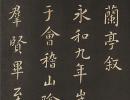 蘭亭叙
永和九年
于會稽山
羣賢畢至